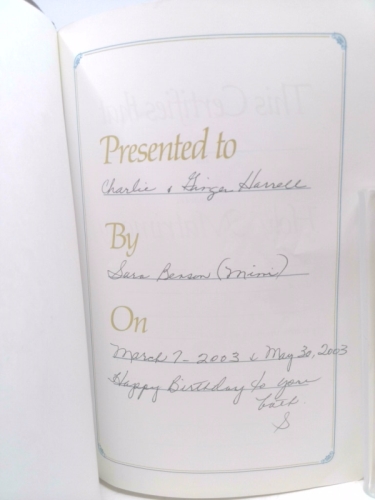 Presented to
Charlie & Ginger Harrell
By
Sara Benson (Mimi)
On
March 7- 2003 & May 30, 2003
Happy Birthday to you
both.
S